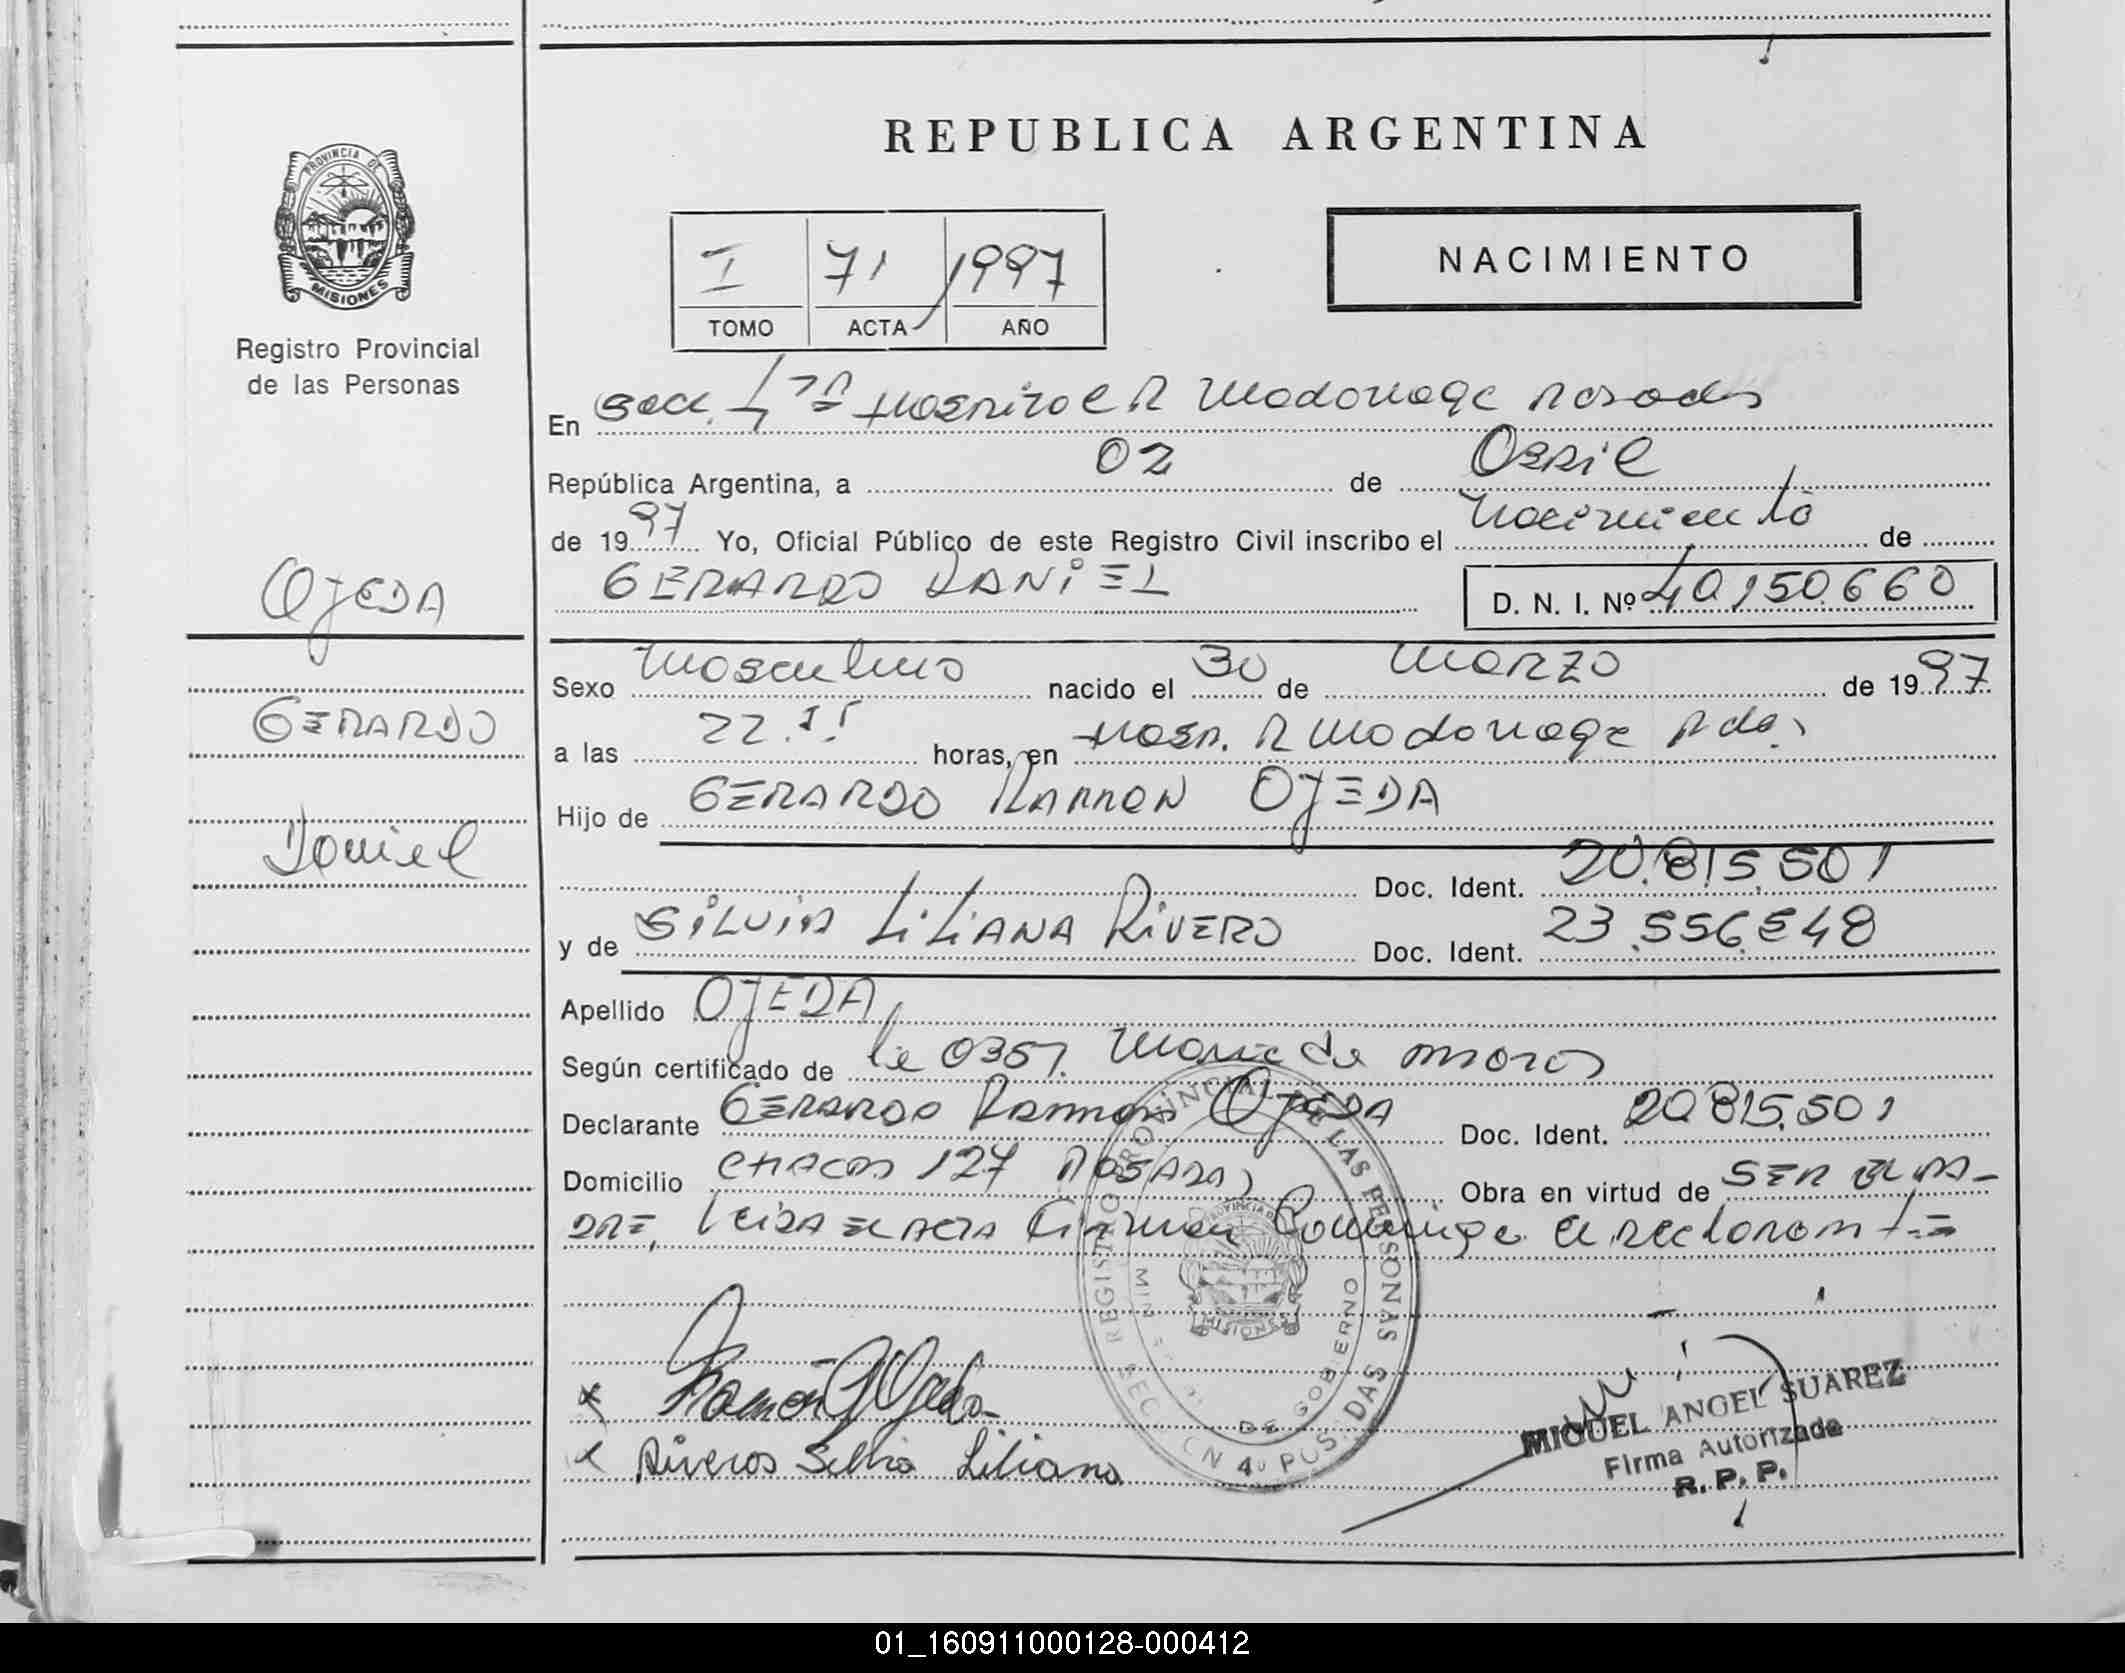 PROVINCIA DE
MISIONES
Registro Provincial
de las Personas
OJEDA
GERARDO
Daniel
REPUBLICA ARGENTINA
I 71 1997
TOMO ACTA AÑO
NACIMIENTO
En Secc. 4ta Hospital R Madariaga Posadas
República Argentina, a 02 de Abril
de 1997 Yo, Oficial Público de este Registro Civil inscribo el Nacimiento de
GERARDO DANIEL D. N. I. Nº 40,150.660
Sexo Masculino nacido el 30 de Marzo de 1997
a las 22. horas, en Hosp. R Madariaga Pdas.
Hijo de GERARDO RAMON OJEDA
Doc. Ident. 20.815.501
y de SILVIA LILIANA RIVERO Doc. Ident. 23.556.548
Apellido OJEDA
Según certificado de Lie 0357. Maria de
Declarante GERARDO Ramon OJEDA Doc. Ident. 20.815.501
Domicilio CHACO 127 POSADAS Obra en virtud de SER EL PA-
DRE, Leida EL ACTA Firman Conmigo el declarante
REGISTRO PROVINCIAL DE LAS PERSONAS
DE GOBIERNO
MISIONES
4º POSADAS
x Ramón G Ojeda
x Riveros Silvia Liliana
MIGUEL ANGEL SUAREZ
Firma Autorizada
R. P. P.
01_160911000128-000412